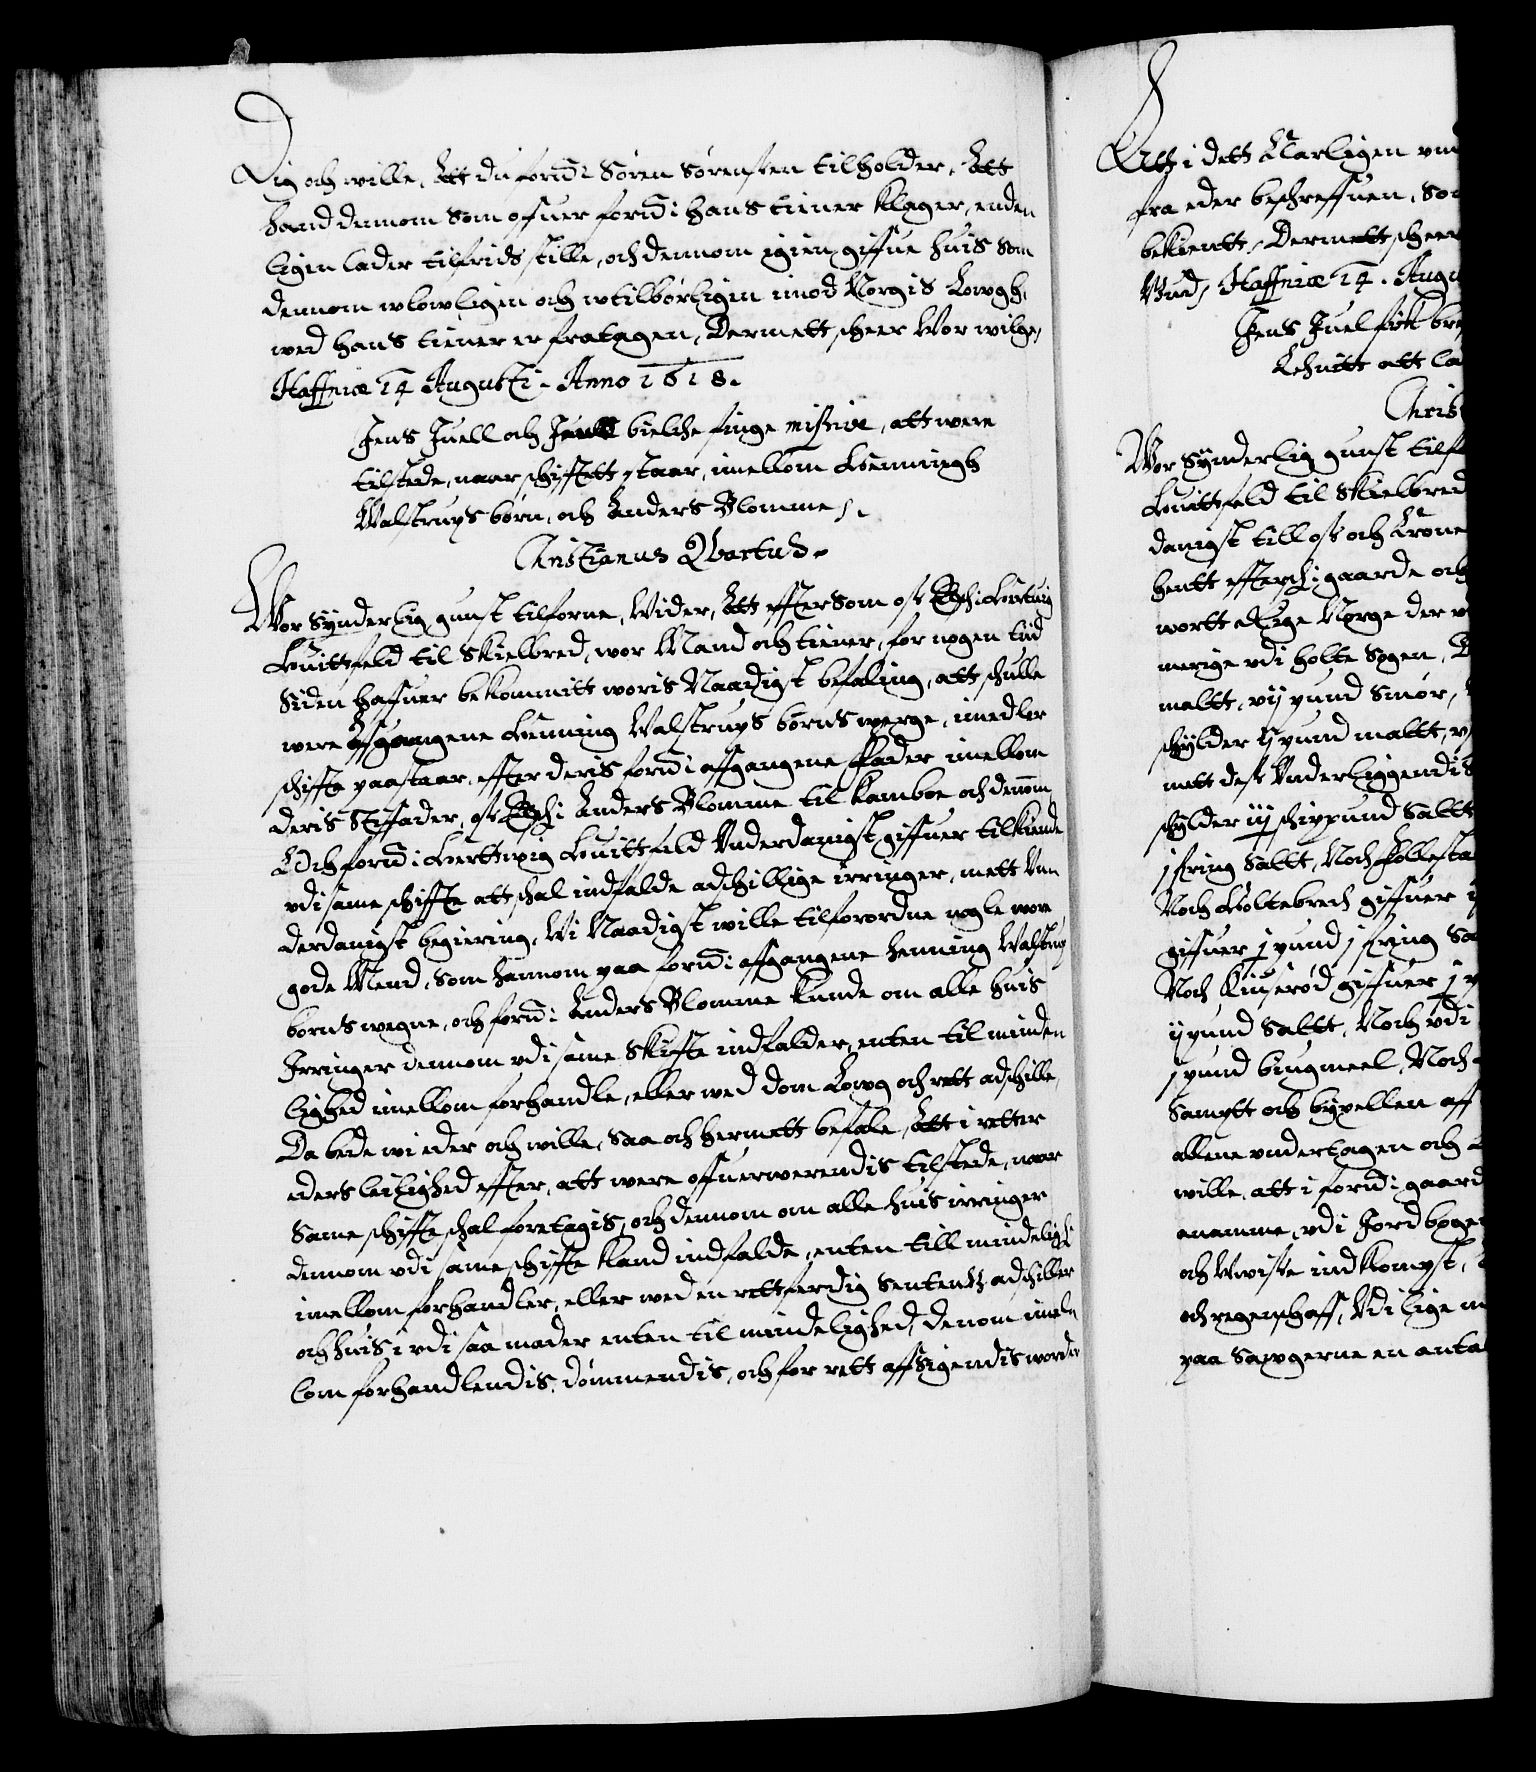 Dig och wille, Att du forn: Søren Sørensen tilholder, Att
hand dennom som offuer forn: hans tiener klager, enden
ligen lader tilfrids stille, och dennom igien giffue huis som
dennom wlowligen och wtilbørligen imod Norgis Lowgh,
wed hans tiener er fratagen, Dermett scheer Wor wilge,
Haffniæ 14 Augusti. Anno 1618.
Jens Juell och Jens bielche finge missive, att were
tilstede, naar schifftett staar, imellom Henningh
Walstrups børn, och Anders Blomme.
Christianus Qvartus.
Wor synderlig gunst tilforne, Wider, Att effter som oss Elsch: Hartuig
Huittfeld til Skielbred, wor Mand och tiener, for nogen tiid
siden haffuer bekommitt woris Naadigst befaling, att schulle
were affgangene Henning Walstrups børns werge, imedler
schiffte paastaar, effter deris forn: affgangene Fader imellom
deris Stiffader, oss Elsch: Anders Blomme til Kamboe och dennom
Och forn: Hertuig Huittfeld Vnderdanigst giffuer tilkiende
vdi same schiffte att schal indfalde adschillige irringer, mett Vnn
derdanigst begiering, Wi Naadigst wille tilforordne nogle wore
gode Mend, som hannom paa forn: affgangene Henning Walstrups
børns wegne, och forn: Anders Blomme kunde om alle huis
Irringer dennom vdi same Skiffte indfalder, enten til minden
lighed imellom forhandle, eller wed dom Lowg och rett adschille,
Da bede wi eder och wille, saa och hermett befale, Att i retter
eders leilighed effter, att were offuerwerendis tilstede, naar
same schiffte schal foretagis, och dennom om alle huis irringer
dennom vdi same schiffte kand indfalde, enten till mindeligh
imellom forhandler, eller wed en rettferdig Sententz adschiller
och huis i vdi saa mader enten til mindelighed, denom imel
lom forhandlendis, dømmendis, och for rett affsigendis worder
Att i dett Klarligen vn
fra eder beschreffuen, So
bekientt, Dermett scheer
Vnd, Haffniæ 14. Augu
Jens Juel fik bre
Att la
Chris
Wor Synderlig gunst tilf
Huittfeld til Skielbred
danigst till oss och Crone
hentt effterch: gaarde och
wortt Rige Norge der
merige vdi Holte Sogen,
maltt, vij pund Smør,
schylder ij pund maltt,
mett dess Vnderliggendis
schylder iij schippund Saltt
j fring Saltt, Noch Follesta
Noch Holtebrech giffuer
giffuer j pund j fring Sa
Noch Kuserød giffuer j p
ij pund Saltt, Noch vdi
j pund biugmeel, Noch
Sampt och bypellen aff
allene vndertagen och
wille, att i forn: gaard
anamme, vdi Jordboge
och Vwisse indkompst,
och regenschaff, Vdi lige m
paa Sawgerne en anta